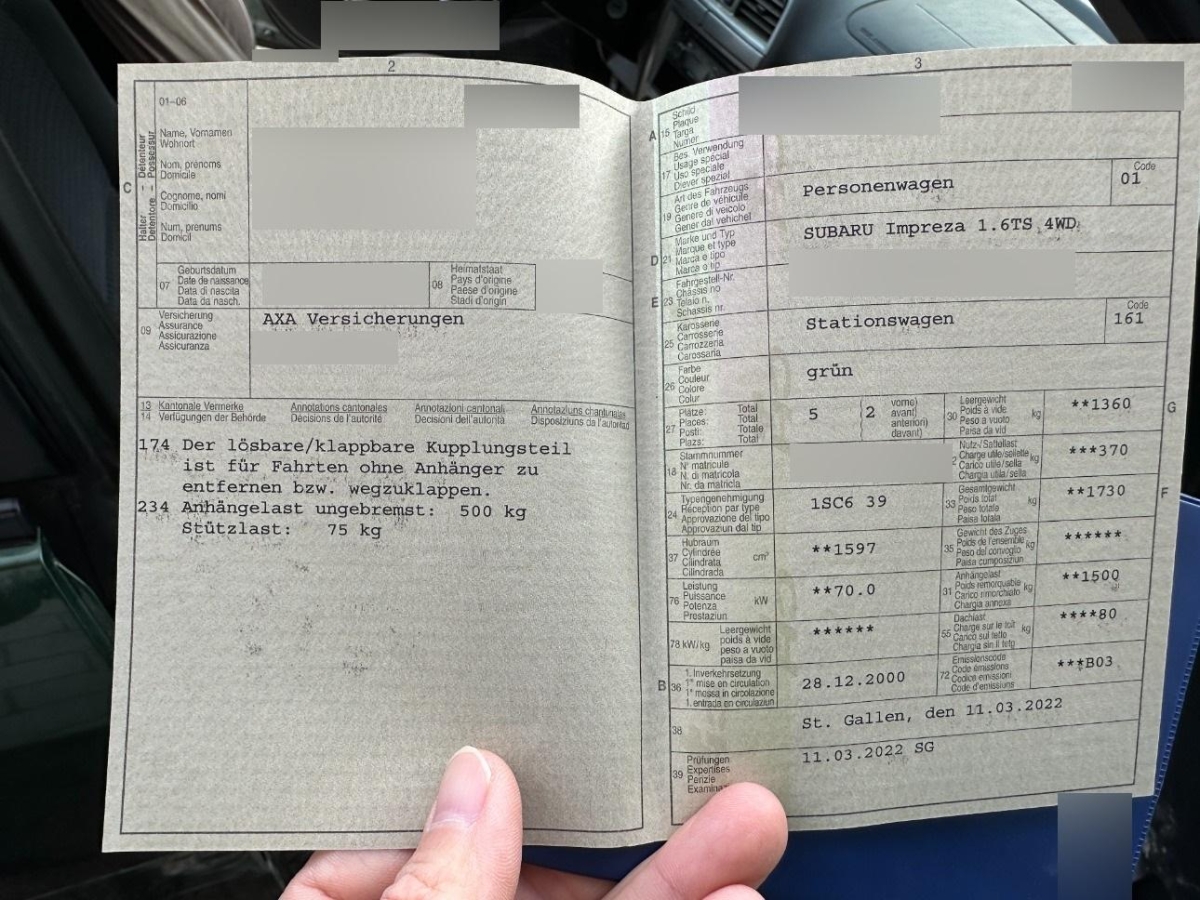 2
01–06
C
Halter – Détenteur
Detentore – Possessur
Name, Vornamen
Wohnort
Nom, prénoms
Domicile
Cognome, nomi
Domicilio
Num, prenums
Domicil
07
Geburtsdatum
Date de naissance
Data di nascita
Data da nasch.
08
Heimatstaat
Pays d'origine
Paese d'origine
Stadi d'origin
09
Versicherung
Assurance
Assicurazione
Assicuranza
AXA Versicherungen
13 Kantonale Vermerke
14 Verfügungen der Behörde
Annotations cantonales
Décisions de l'autorité
Annotazioni cantonali
Decisioni dell'autorità
Annotaziuns chantunalas
Disposiziuns da l'autoritad
174 Der lösbare/klappbare Kupplungsteil
ist für Fahrten ohne Anhänger zu
entfernen bzw. wegzuklappen.
234 Anhängelast ungebremst: 500 kg
Stützlast: 75 kg
3
A 15
Schild
Plaque
Targa
Numer
17
Bes. Verwendung
Usage spécial
Uso speciale
Diever spezial
19
Art des Fahrzeugs
Genre de véhicule
Genere di veicolo
Gener dal vehichel
Personenwagen
Code
01
D 21
Marke und Typ
Marque et type
Marca e tipo
Marca e tip
SUBARU Impreza 1.6TS 4WD
E 23
Fahrgestell-Nr.
Châssis no
Telaio n.
Schassis nr.
25
Karosserie
Carrosserie
Carrozzeria
Carossaria
Stationswagen
Code
161
26
Farbe
Couleur
Colore
Colur
grün
27
Plätze: Total
Places: Total
Posti: Totale
Plazs: Total
5
2
vorne)
avant)
anteriori)
davant)
30
Leergewicht
Poids à vide
Peso a vuoto
Paisa da vid
kg
**1360
G
18
Stammnummer
N° matricule
N. di matricola
Nr. da matricla
Nutz-/Sattellast
Charge utile/sellette
Carico utile/sella
Chargia utila/sella
kg
***370
24
Typengenehmigung
Réception par type
Approvazione del tipo
Approvaziun dal tip
1SC6 39
33
Gesamtgewicht
Poids total
Peso totale
Paisa totala
kg
**1730
F
37
Hubraum
Cylindrée
Cilindrata
Cilindrada
cm³
**1597
35
Gewicht des Zuges
Poids de l'ensemble
Peso del convoglio
Paisa cumposiziun
kg
******
76
Leistung
Puissance
Potenza
Prestaziun
kW
**70.0
31
Anhängelast
Poids remorquable
Carico rimorchiato
Chargia annexa
kg
**1500
78 kW/kg
Leergewicht
poids à vide
peso a vuoto
paisa da vid
******
55
Dachlast
Charge sur le toit
Carico sul tetto
Chargia sin il tetg
kg
****80
B 36
1. Inverkehrsetzung
1re mise en circulation
1a messa in circolazione
1. entrada en circulaziun
28.12.2000
72
Emissionscode
Code émissions
Codice emissioni
Code d'emissiuns
***B03
38
St. Gallen, den 11.03.2022
39
Prüfungen
Expertises
Perizie
11.03.2022 SG